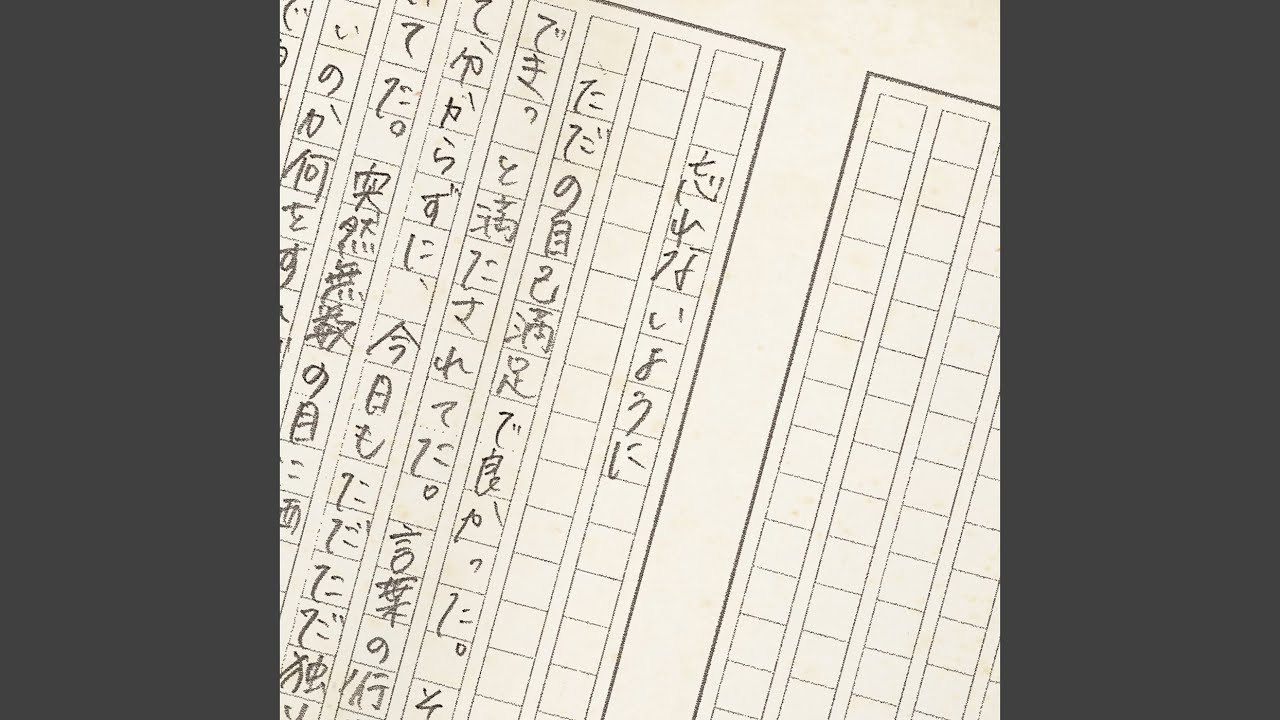 忘れないように
ただの自己満足で良かった。そ
できっと満たされてた。言葉の行
て分からずに、今日もただただ独
いてた。突然無数の目に
いのか何をす
で